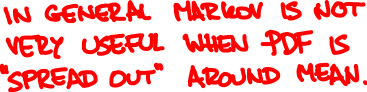 IN GENERAL MARKOV IS NOT
VERY USEFUL WHEN PDF IS
"SPREAD OUT" AROUND MEAN.